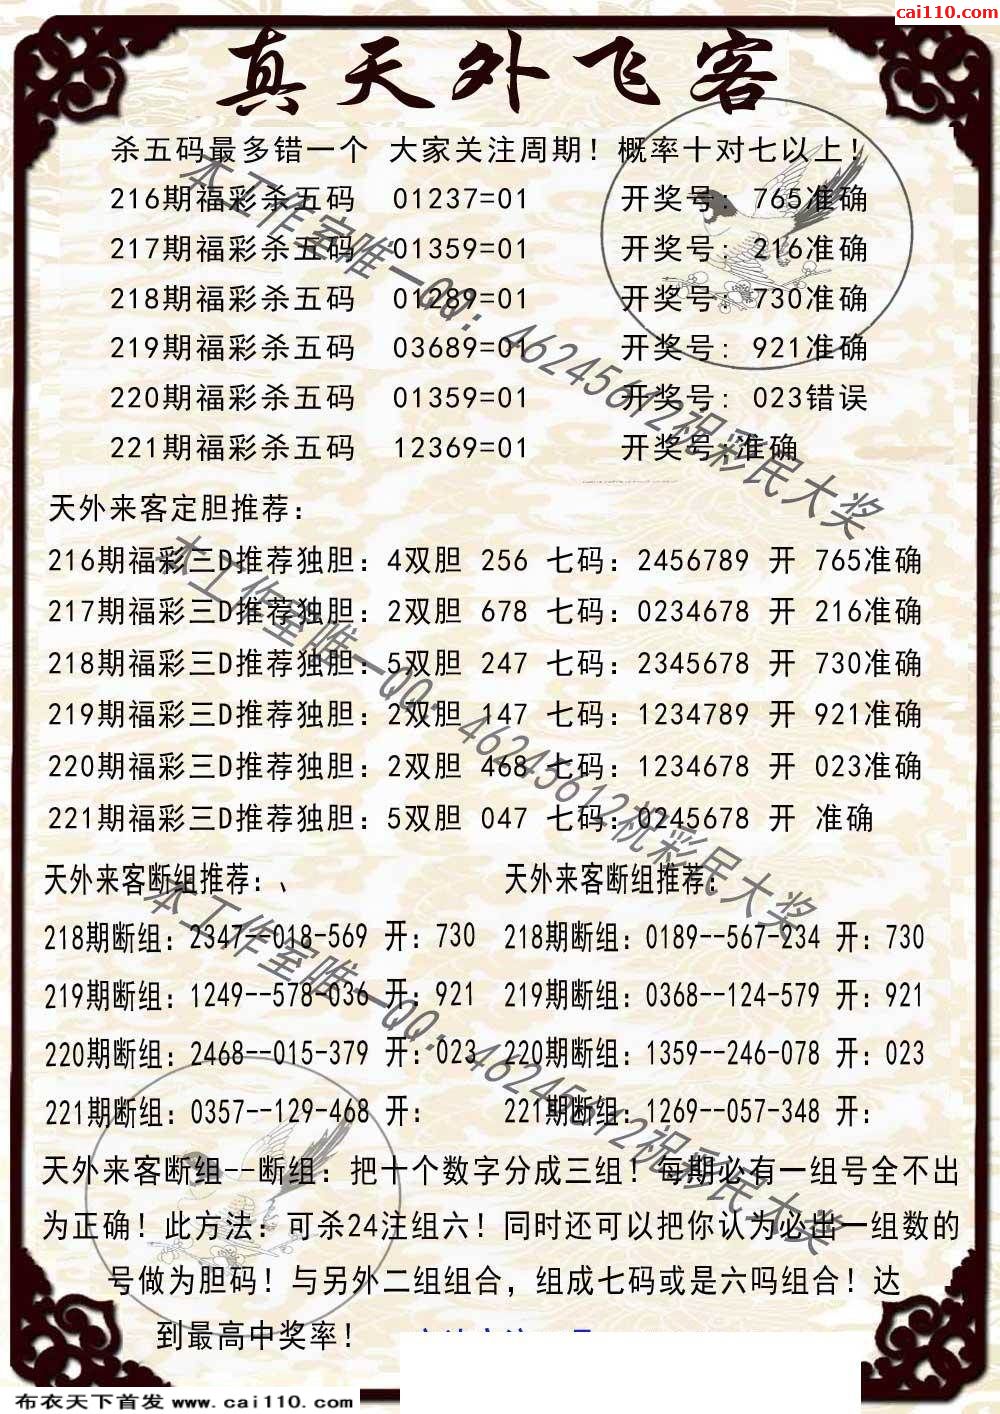 cai110.com
真天外飞客
杀五码最多错一个 大家关注周期！概率十对七以上！
216期福彩杀五码 01237=01 开奖号: 765准确
217期福彩杀五码 01359=01 开奖号: 216准确
218期福彩杀五码 01289=01 开奖号: 730准确
219期福彩杀五码 03689=01 开奖号: 921准确
220期福彩杀五码 01359=01 开奖号: 023错误
221期福彩杀五码 12369=01 开奖号:准确
天外来客定胆推荐：
216期福彩三D推荐独胆：4双胆 256 七码：2456789 开 765准确
217期福彩三D推荐独胆：2双胆 678 七码：0234678 开 216准确
218期福彩三D推荐独胆：5双胆 247 七码：2345678 开 730准确
219期福彩三D推荐独胆：2双胆 147 七码：1234789 开 921准确
220期福彩三D推荐独胆：2双胆 468 七码：1234678 开 023准确
221期福彩三D推荐独胆：5双胆 047 七码：0245678 开 准确
天外来客断组推荐：、 天外来客断组推荐：
218期断组：2347--018-569 开：730 218期断组：0189--567-234 开：730
219期断组：1249--578-036 开：921 219期断组：0368--124-579 开：921
220期断组：2468--015-379 开：023 220期断组：1359--246-078 开：023
221期断组：0357--129-468 开： 221期断组：1269--057-348 开：
天外来客断组--断组：把十个数字分成三组！每期必有一组号全不出
为正确！此方法：可杀24注组六！同时还可以把你认为必出一组数的
号做为胆码！与另外二组组合，组成七码或是六吗组合！达
到最高中奖率！
本工作室唯一QQ：46245612祝彩民大奖
本工作室唯一QQ：46245612祝彩民大奖
本工作室唯一QQ：46245612祝彩民大奖
布衣天下首发 www.cai110.com